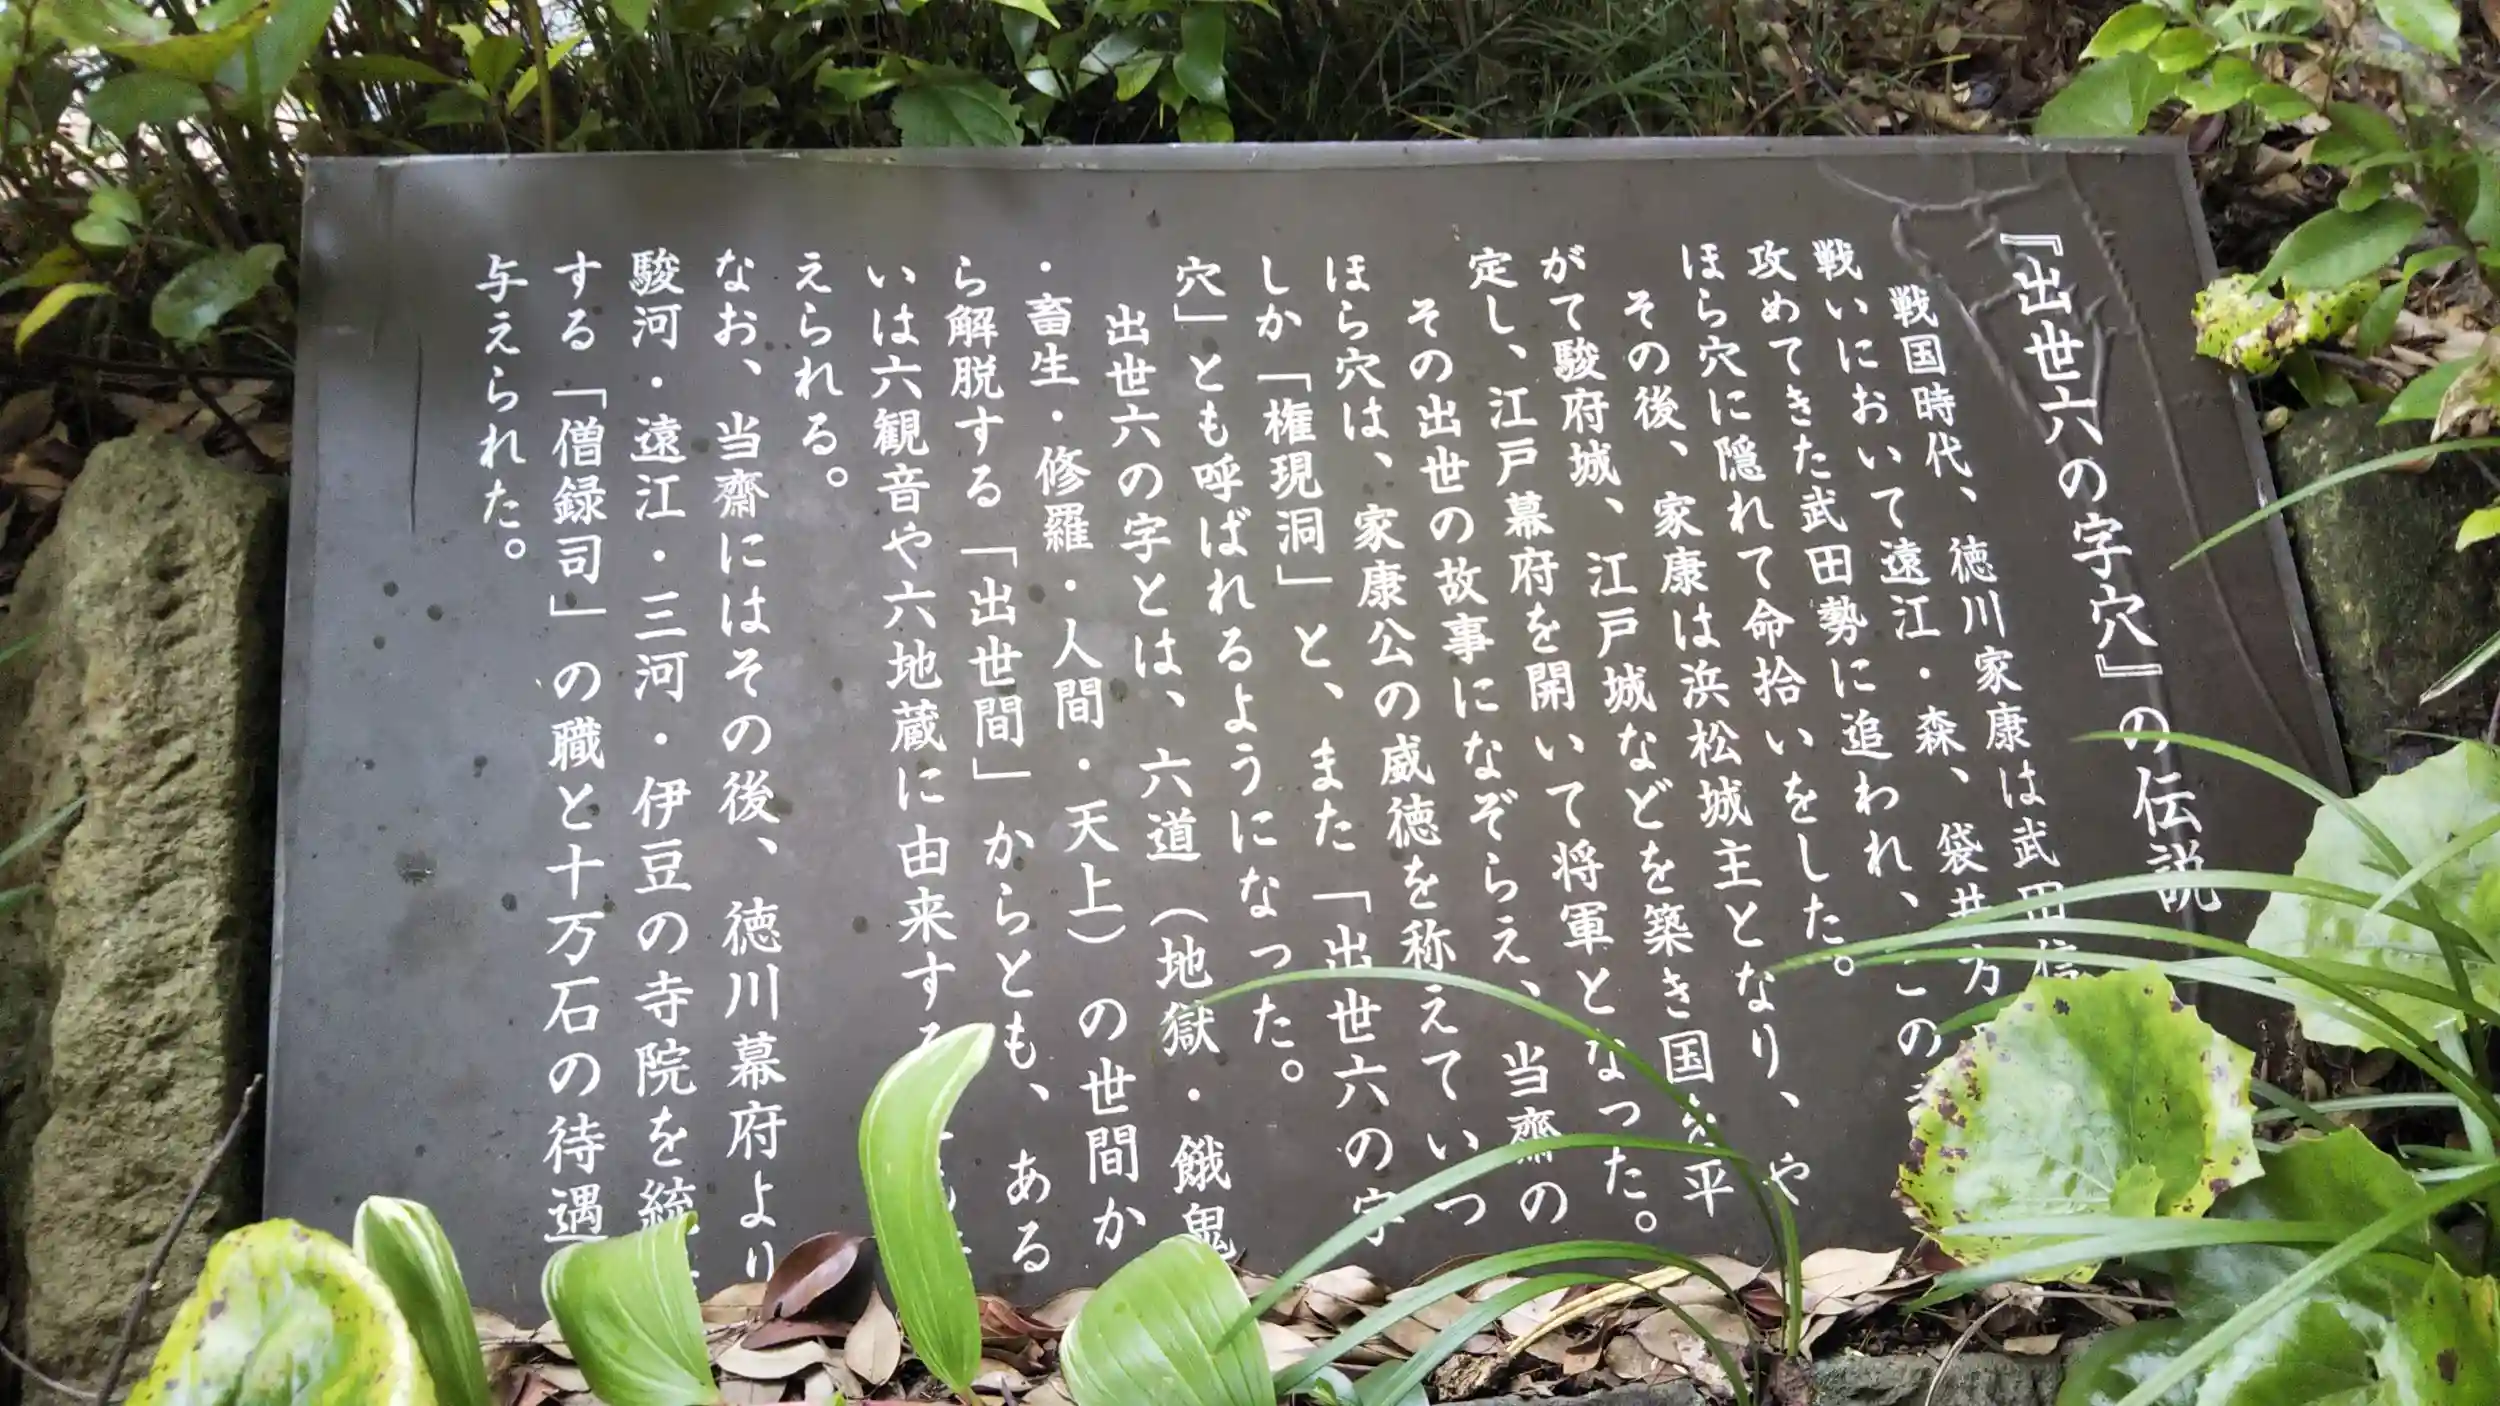 『出世六の字穴』の伝説
戦国時代、徳川家康は武田信
戦いにおいて遠江・森、袋井方
攻めてきた武田勢に追われ、この
ほら穴に隠れて命拾いをした。
その後、家康は浜松城主となり、や
がて駿府城、江戸城などを築き国を平
定し、江戸幕府を開いて将軍となった。
その出世の故事になぞらえ、当齋の
ほら穴は、家康公の威徳を称えていつ
しか「権現洞」と、また「出世六の字
穴」とも呼ばれるようになった。
出世六の字とは、六道（地獄・餓鬼
・畜生・修羅・人間・天上）の世間か
ら解脱する「出世間」からとも、ある
いは六観音や六地蔵に由来する
えられる。
なお、当齋にはその後、徳川幕府より
駿河・遠江・三河・伊豆の寺院を統
する「僧録司」の職と十万石の待遇
与えられた。